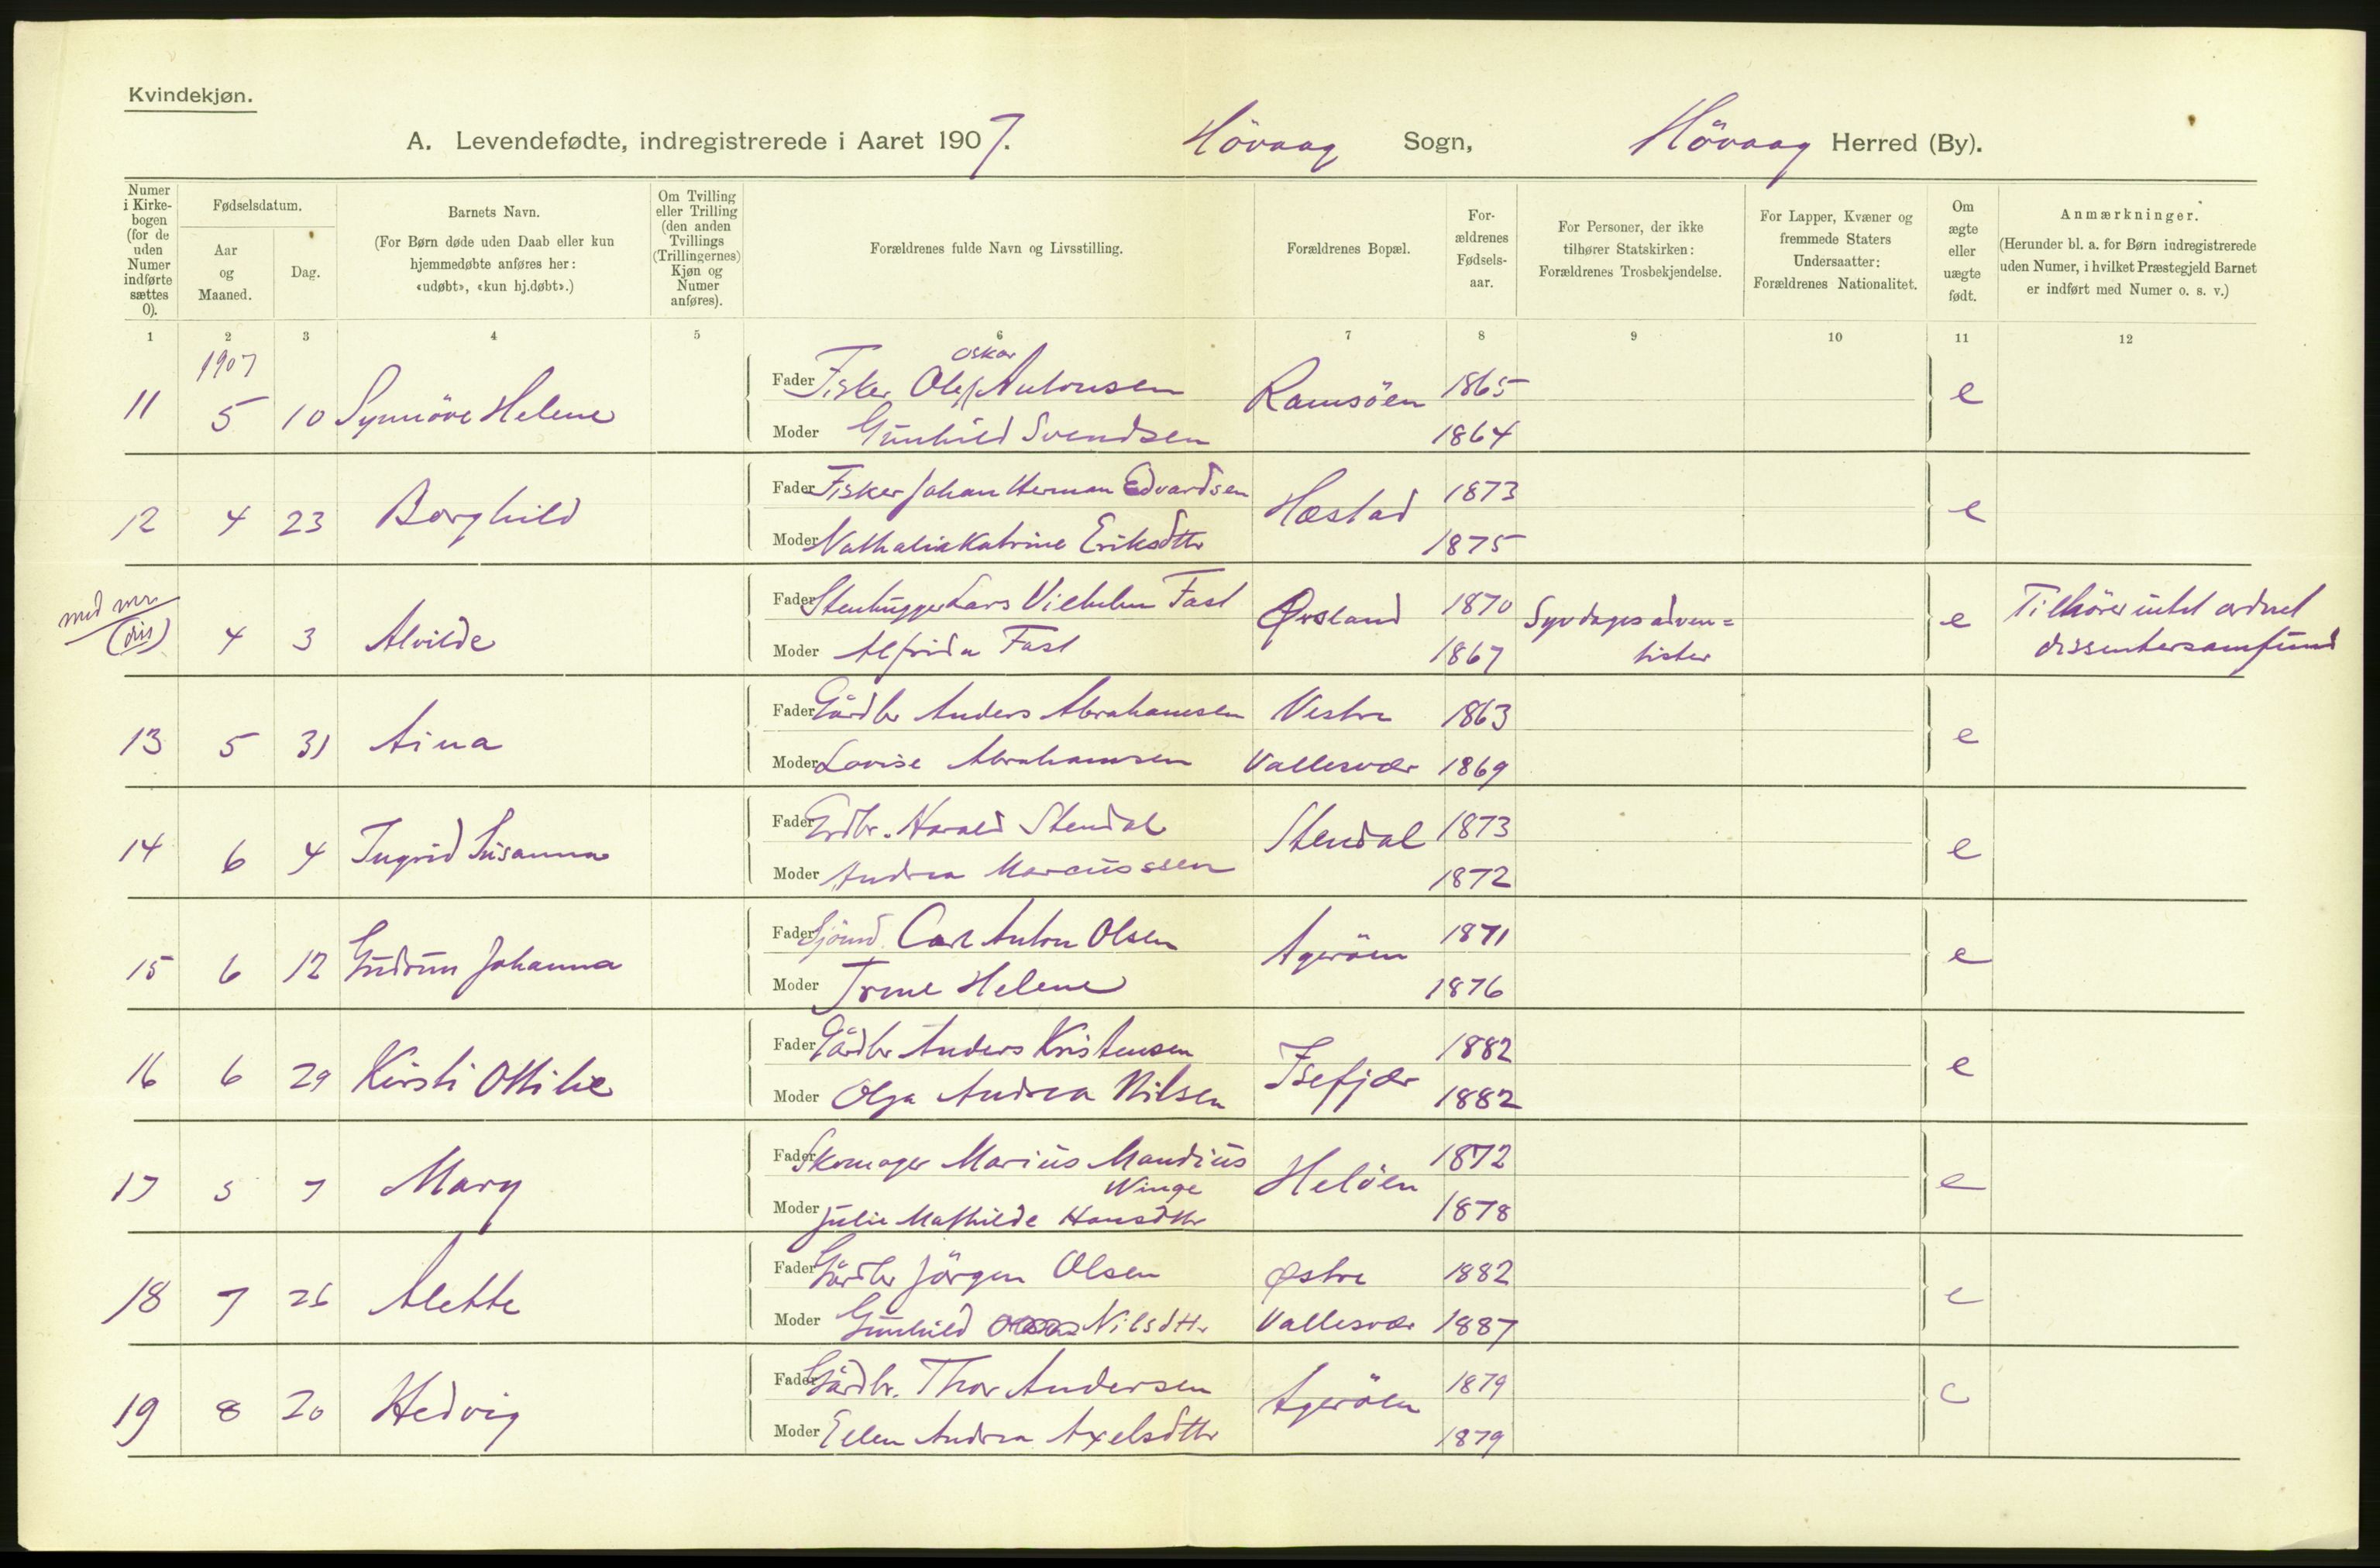 Kvindekjøn.
A. Levendefødte, indregistrerede i Aaret 1907. Hövaag Sogn, Hövaag Herred (By).
Numer i Kirkebogen (for de uden Numer indførte sættes 0).
Fødselsdatum.
Aar og Maaned.
Dag.
Barnets Navn.
(For Børn døde uden Daab eller kun hjemmedøbte anføres her: «udøbt», «kun hj.døbt».)
Om Tvilling eller Trilling (den anden Tvillings (Trillingernes) Kjøn og Numer anføres).
Forældrenes fulde Navn og Livsstilling.
Forældrenes Bopæl.
Forældrenes Fødselsaar.
For Personer, der ikke tilhører Statskirken: Forældrenes Trosbekjendelse.
For Lapper, Kvæner og fremmede Staters Undersaatter: Forældrenes Nationalitet.
Om ægte eller uægte født.
Anmærkninger.
(Herunder bl. a. for Børn indregistrerede uden Numer, i hvilket Præstegjeld Barnet er indført med Numer o. s. v.)
1 2 3 4 5 6 7 8 9 10 11 12
1907
11 5 10 Synnöve Helene Fader Fisker Olaf Oskar Antonsen Ramsöen 1865 e
Moder Gunhild Svendsen 1864
12 4 23 Borghild Fader Fisker Johan Herman Edvardsen Hæstad 1873 e
Moder Nathalia Katrine Eriksdttr 1875
(dis) 4 3 Alvilde Fader Stenhugger Lars Vilhelm Fast Øvsland 1870 Syvdagsadven= e Tilhörer intet ordnet
Moder Alfrida Fast 1867 tister dissentersamfund
13 5 31 Aina Fader Gårdbr Anders Abrahamsen Vestre 1863 e
Moder Lovise Abrahamsen Vallesvær 1869
14 6 4 Ingrid Susanna Fader Grdbr. Harald Stendal Stendal 1873 e
Moder Andrea Marcussen 1872
15 6 12 Gudrun Johanna Fader Sjömd. Carl Anton Olsen Agerøen 1871 e
Moder Trine Helene 1876
16 6 29 Kirsti Ottilie Fader Gårdbr Anders Kristensen Isefjær 1882 e
Moder Olga Andrea Nilsen 1882
17 5 7 Mary Fader Skomager Marius Mandius Winge Helöen 1872 e
Moder Julie Mathilde Hansdttr 1878
18 7 26 Alette Fader Gårdbr Jörgen Olsen Østre 1882 e
Moder Gunhild Nilsdttr Vallesvær 1887
19 8 20 Hedvig Fader Gårdbr. Thor Andersen Ageröen 1879 e
Moder Ellen Andrea Axelsdttr 1879